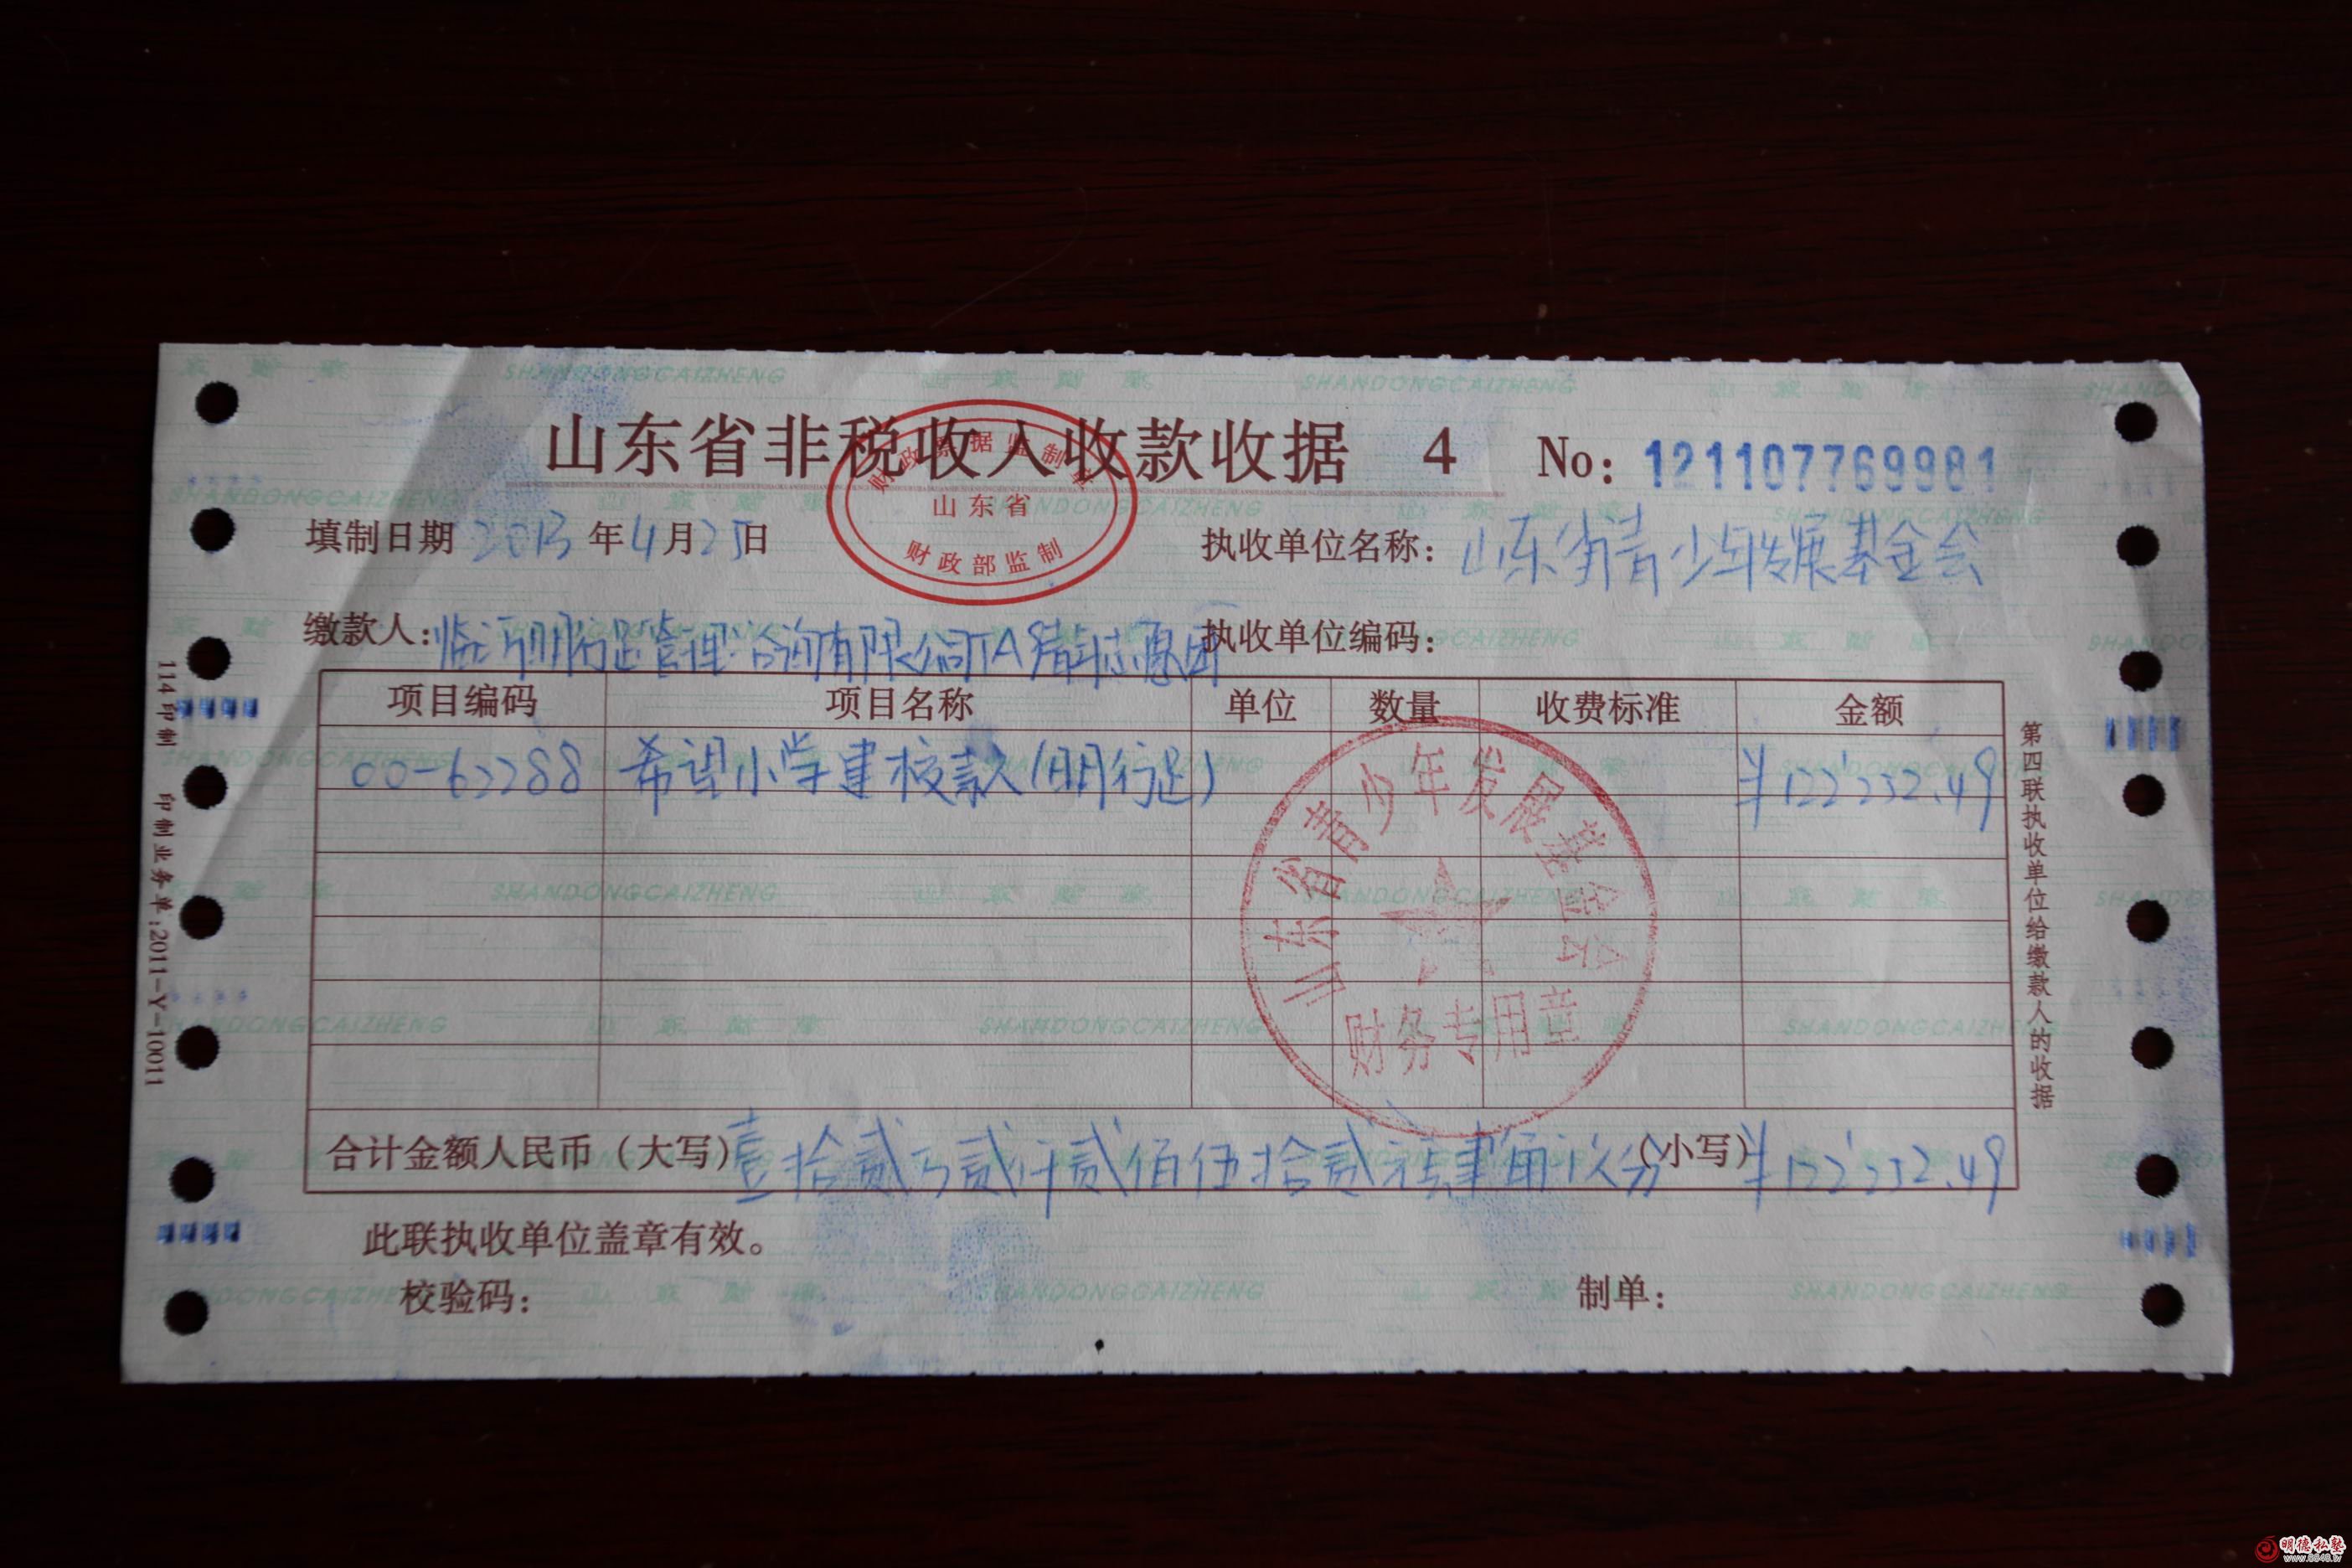 山东省非税收入收款收据 4 No: 121107769981
财政票据监制章
山东省
财政部监制
填制日期 2013 年 4 月 25 日
执收单位名称: 山东省青少年发展基金会
缴款人: 临沂明行足管理咨询有限公司TA 志愿团
执收单位编码:
项目编码 项目名称 单位 数量 收费标准 金额
00-63288 希望小学建校款(明行足) ¥122252.49
山东省青少年发展基金会
财务专用章
合计金额人民币(大写) 壹拾贰万贰仟贰佰伍拾贰元肆角玖分 (小写) ¥122252.49
此联执收单位盖章有效。
校验码: 制单:
第四联执收单位给缴款人的收据
114印制 印制业务单:2011-Y-10011
SHANDONGCAIZHENG
明德私塾